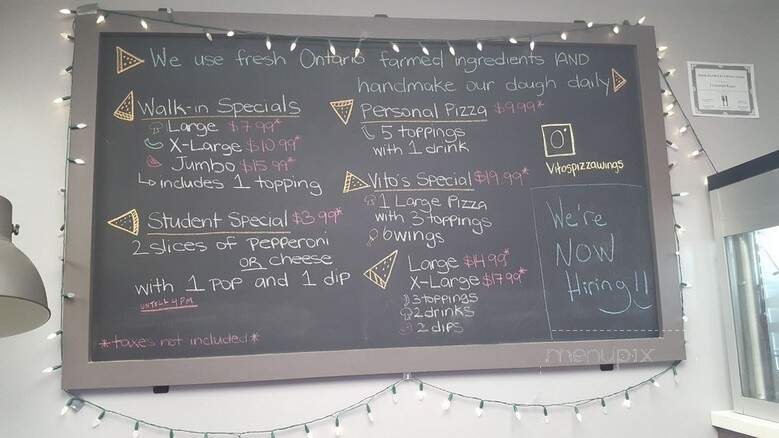 We use fresh Ontario farmed ingredients AND
handmake our dough daily
Walk-in Specials
Large $7.99*
X-Large $10.99*
Jumbo $15.99*
↳ includes 1 topping
Student Special $3.99*
2 slices of pepperoni
OR cheese
with 1 pop and 1 dip
UNTILL 4PM
*taxes not included*
Personal Pizza $9.99*
5 toppings
with 1 drink
Vito's Special $19.99*
1 Large Pizza
with 3 toppings
6 wings
Large $14.99*
X-Large $17.99*
3 toppings
2 drinks
2 dips
Vitospizzawings
We're
NOW
Hiring!!
menupix